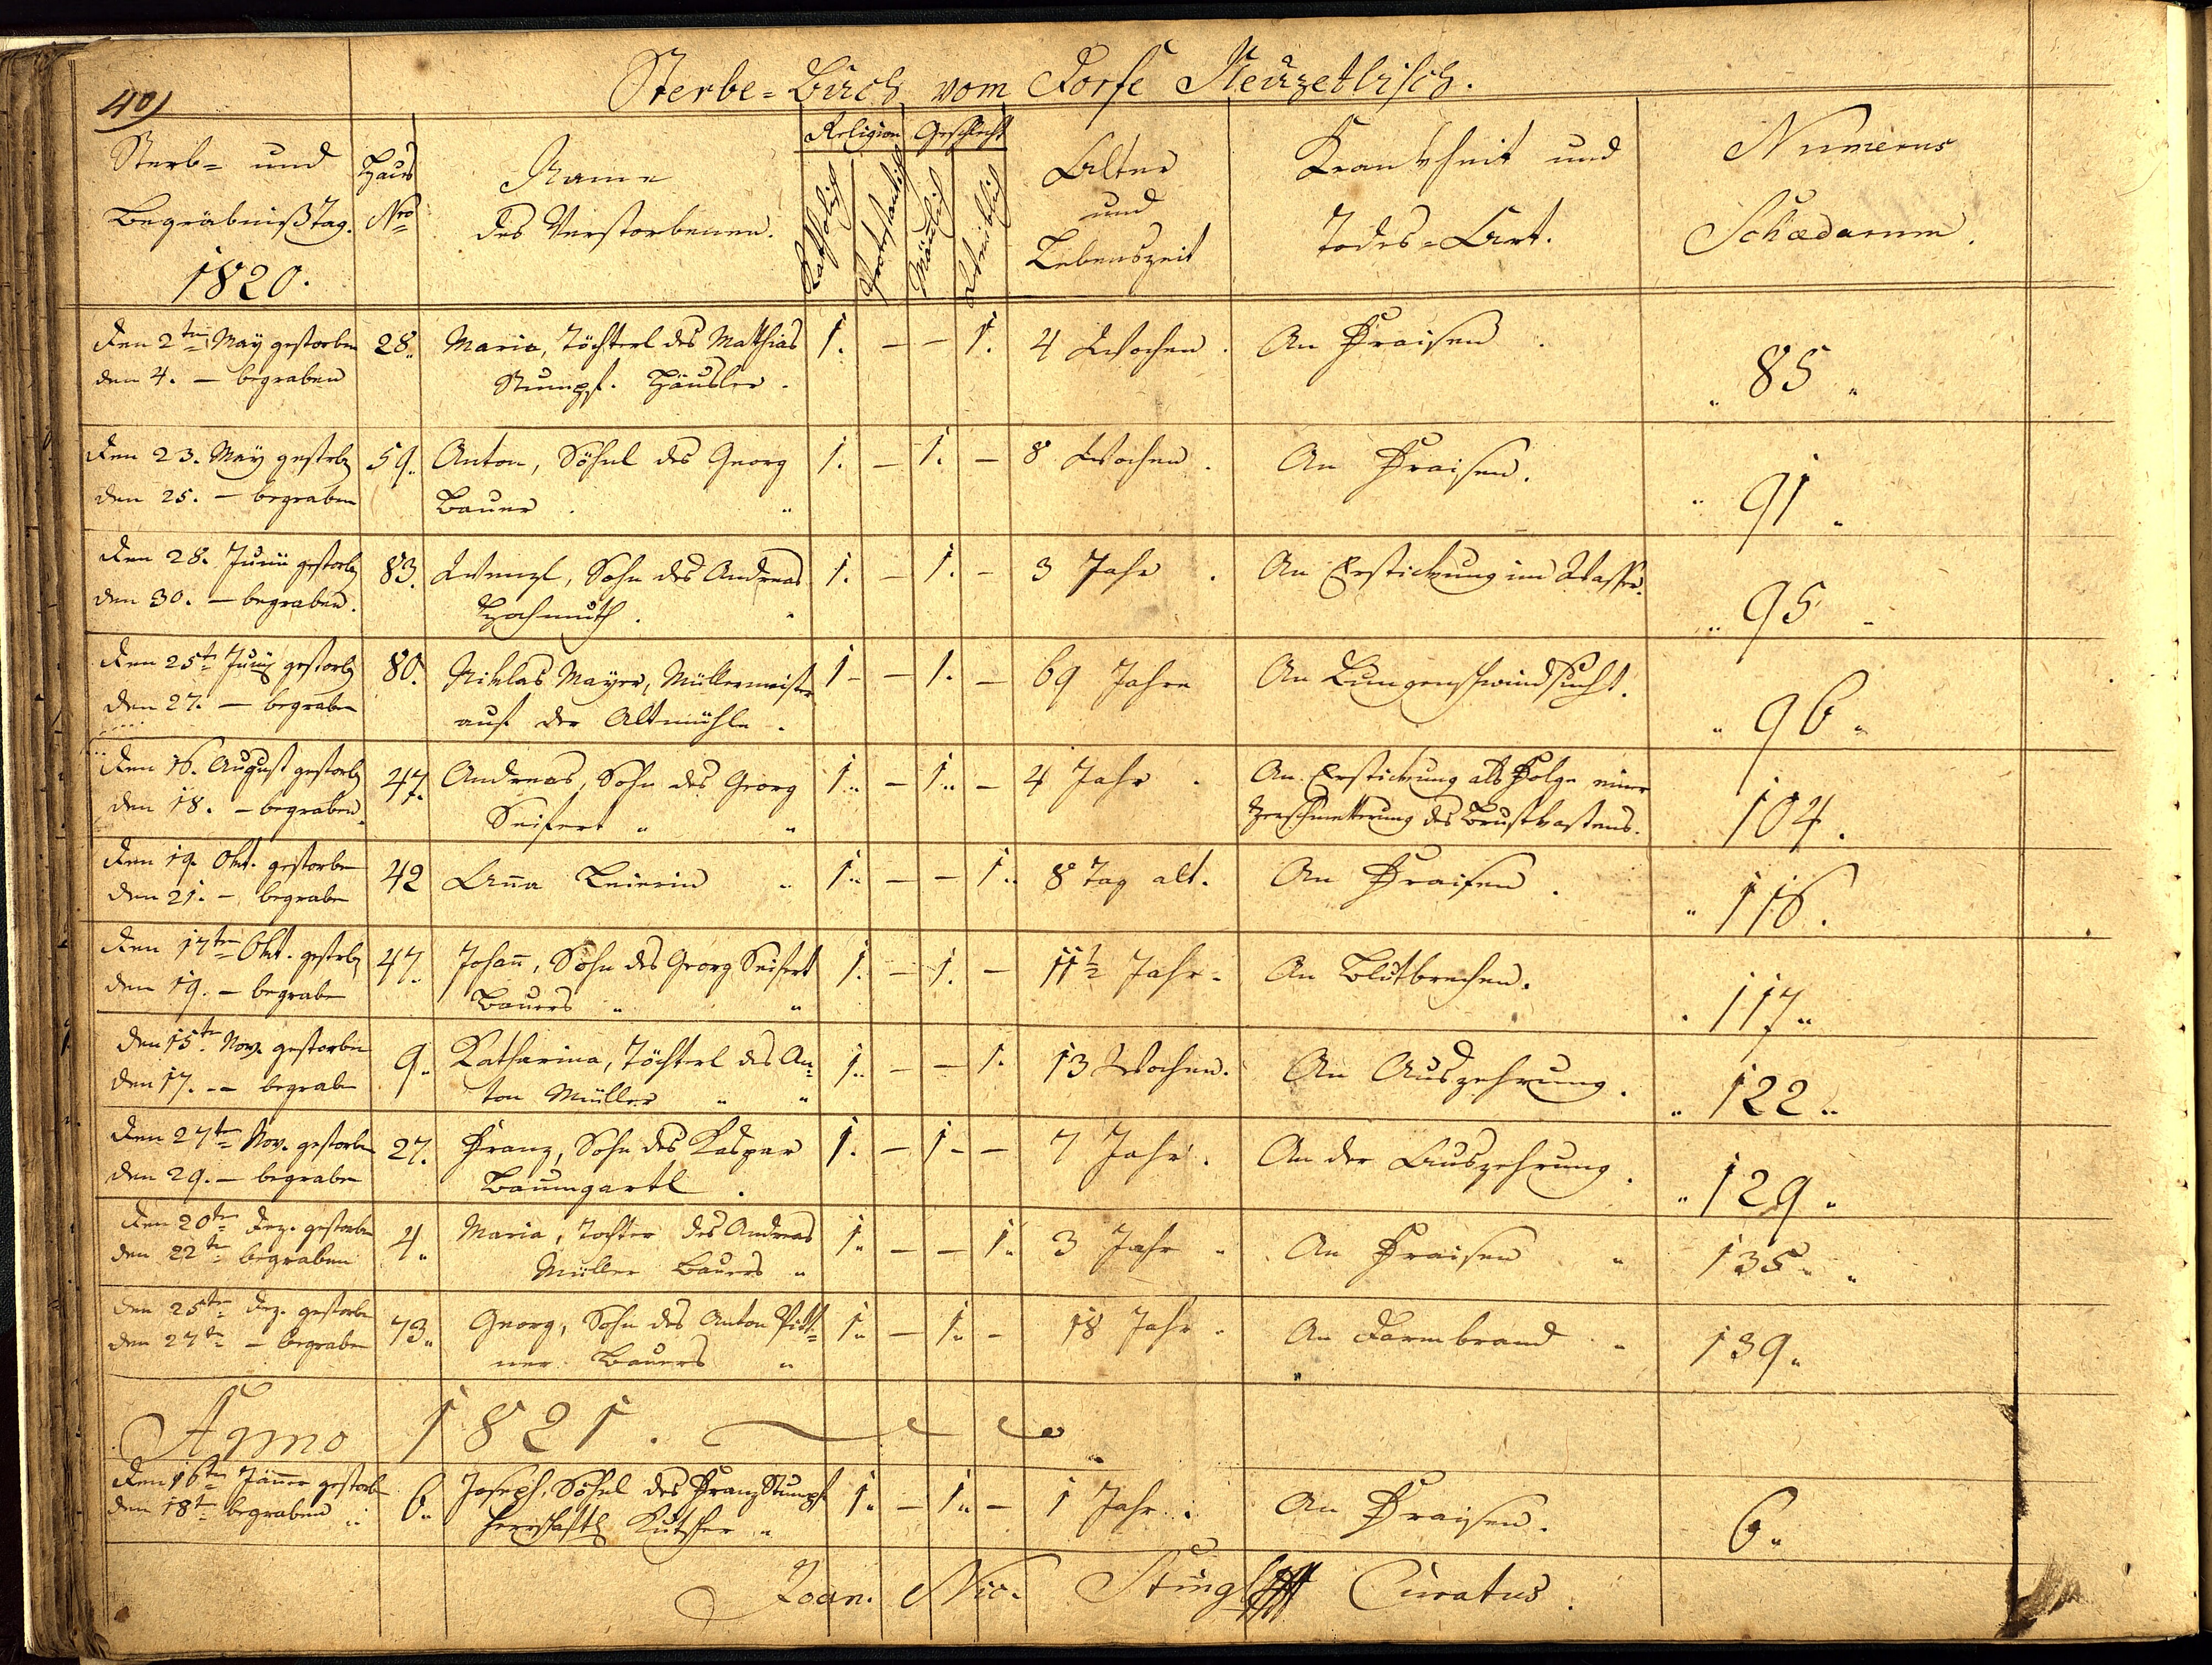 40)
Sterbe-Buch vom Dorfe Neuzetlisch.
Sterb- und Begräbnißtag. 1820.
Haus Nro
Name des Verstorbenen.
Religion
Katholisch
Protestantisch
Geschlecht
Mänlich
Weiblich
Alter und Lebenszeit
Krankheit und Todes-Art.
Numerus Schædarum.
Den 2ten May gestorben 28. Maria, Töchterl des Mathias 1. – – 1. 4 Wochen. An Fraisen.
den 4. – begraben Stumpf. Häusler. 85
Den 23. May gestorb 59. Anton, Söhnl des Georg 1. – 1. – 8 Wochen. An Fraisen.
den 25. – begraben Bauer. 91
Den 28. Junii gestorb 83. Wenzl, Sohn des Andreas 1. – 1. – 3 Jahr. An Erstickung im Wasser.
den 30. – begraben. Hochmuth. 95
Den 25t Junÿ gestorb 80. Niklas Mayer, Müllermeister 1 – – 1. – 69 Jahre An Lungenschwindsucht.
den 27. – begraben auf der Altmühle. 96
Den 16. August gestorb 47. Andreas, Sohn des Georg 1. – 1. – 4 Jahr. An Erstickung als Folge einer
den 18. – begraben. Seifert Zerschmetterung des Brustkastens. 104.
Den 19. Okt. gestorben 42 Anna Beierin 1. – – 1. 8 Tag alt. An Fraisen.
den 21. – begraben 116.
Den 17ten Okt. gestorb 47. Johann, Sohn des Georg Seifert 1. – 1. – 11½ Jahr. An Blutbrechen.
den 19. – begraben Bauers 117
Den 15ten Nov. gestorben 9. Katharina, Töchterl des An- 1. – – 1. 13 Wochen. An Auszehrung.
den 17. – begraben ton Müller 122
Den 27ten Nov. gestorben 27. Franz, Sohn des Kaspar 1. – 1 – – 7 Jahr. An der Auszehrung.
den 29. – begraben Baumgartl. 129
Den 20ten Dez. gestorben 4. Maria, Tochter des Andreas 1. – – 1. 3 Jahr An Fraisen 135
den 22te begraben Müller Bauers
Den 25ten Dez. gestorben 73. Georg, Sohn des Anton Pitt- 1. – 1. – 18 Jahr An Darmbrand 139.
den 27te – begraben ner Bauers
Anno 1821.
Den 16ten Jänner gestorb 6. Joseph, Söhnl des Franz Stumpf 1. – 1. – 1 Jahr. An Fraisen.
den 18t begraben herrschaftl Kutscher 6.
Joan. Nic. Stingl Curatus.